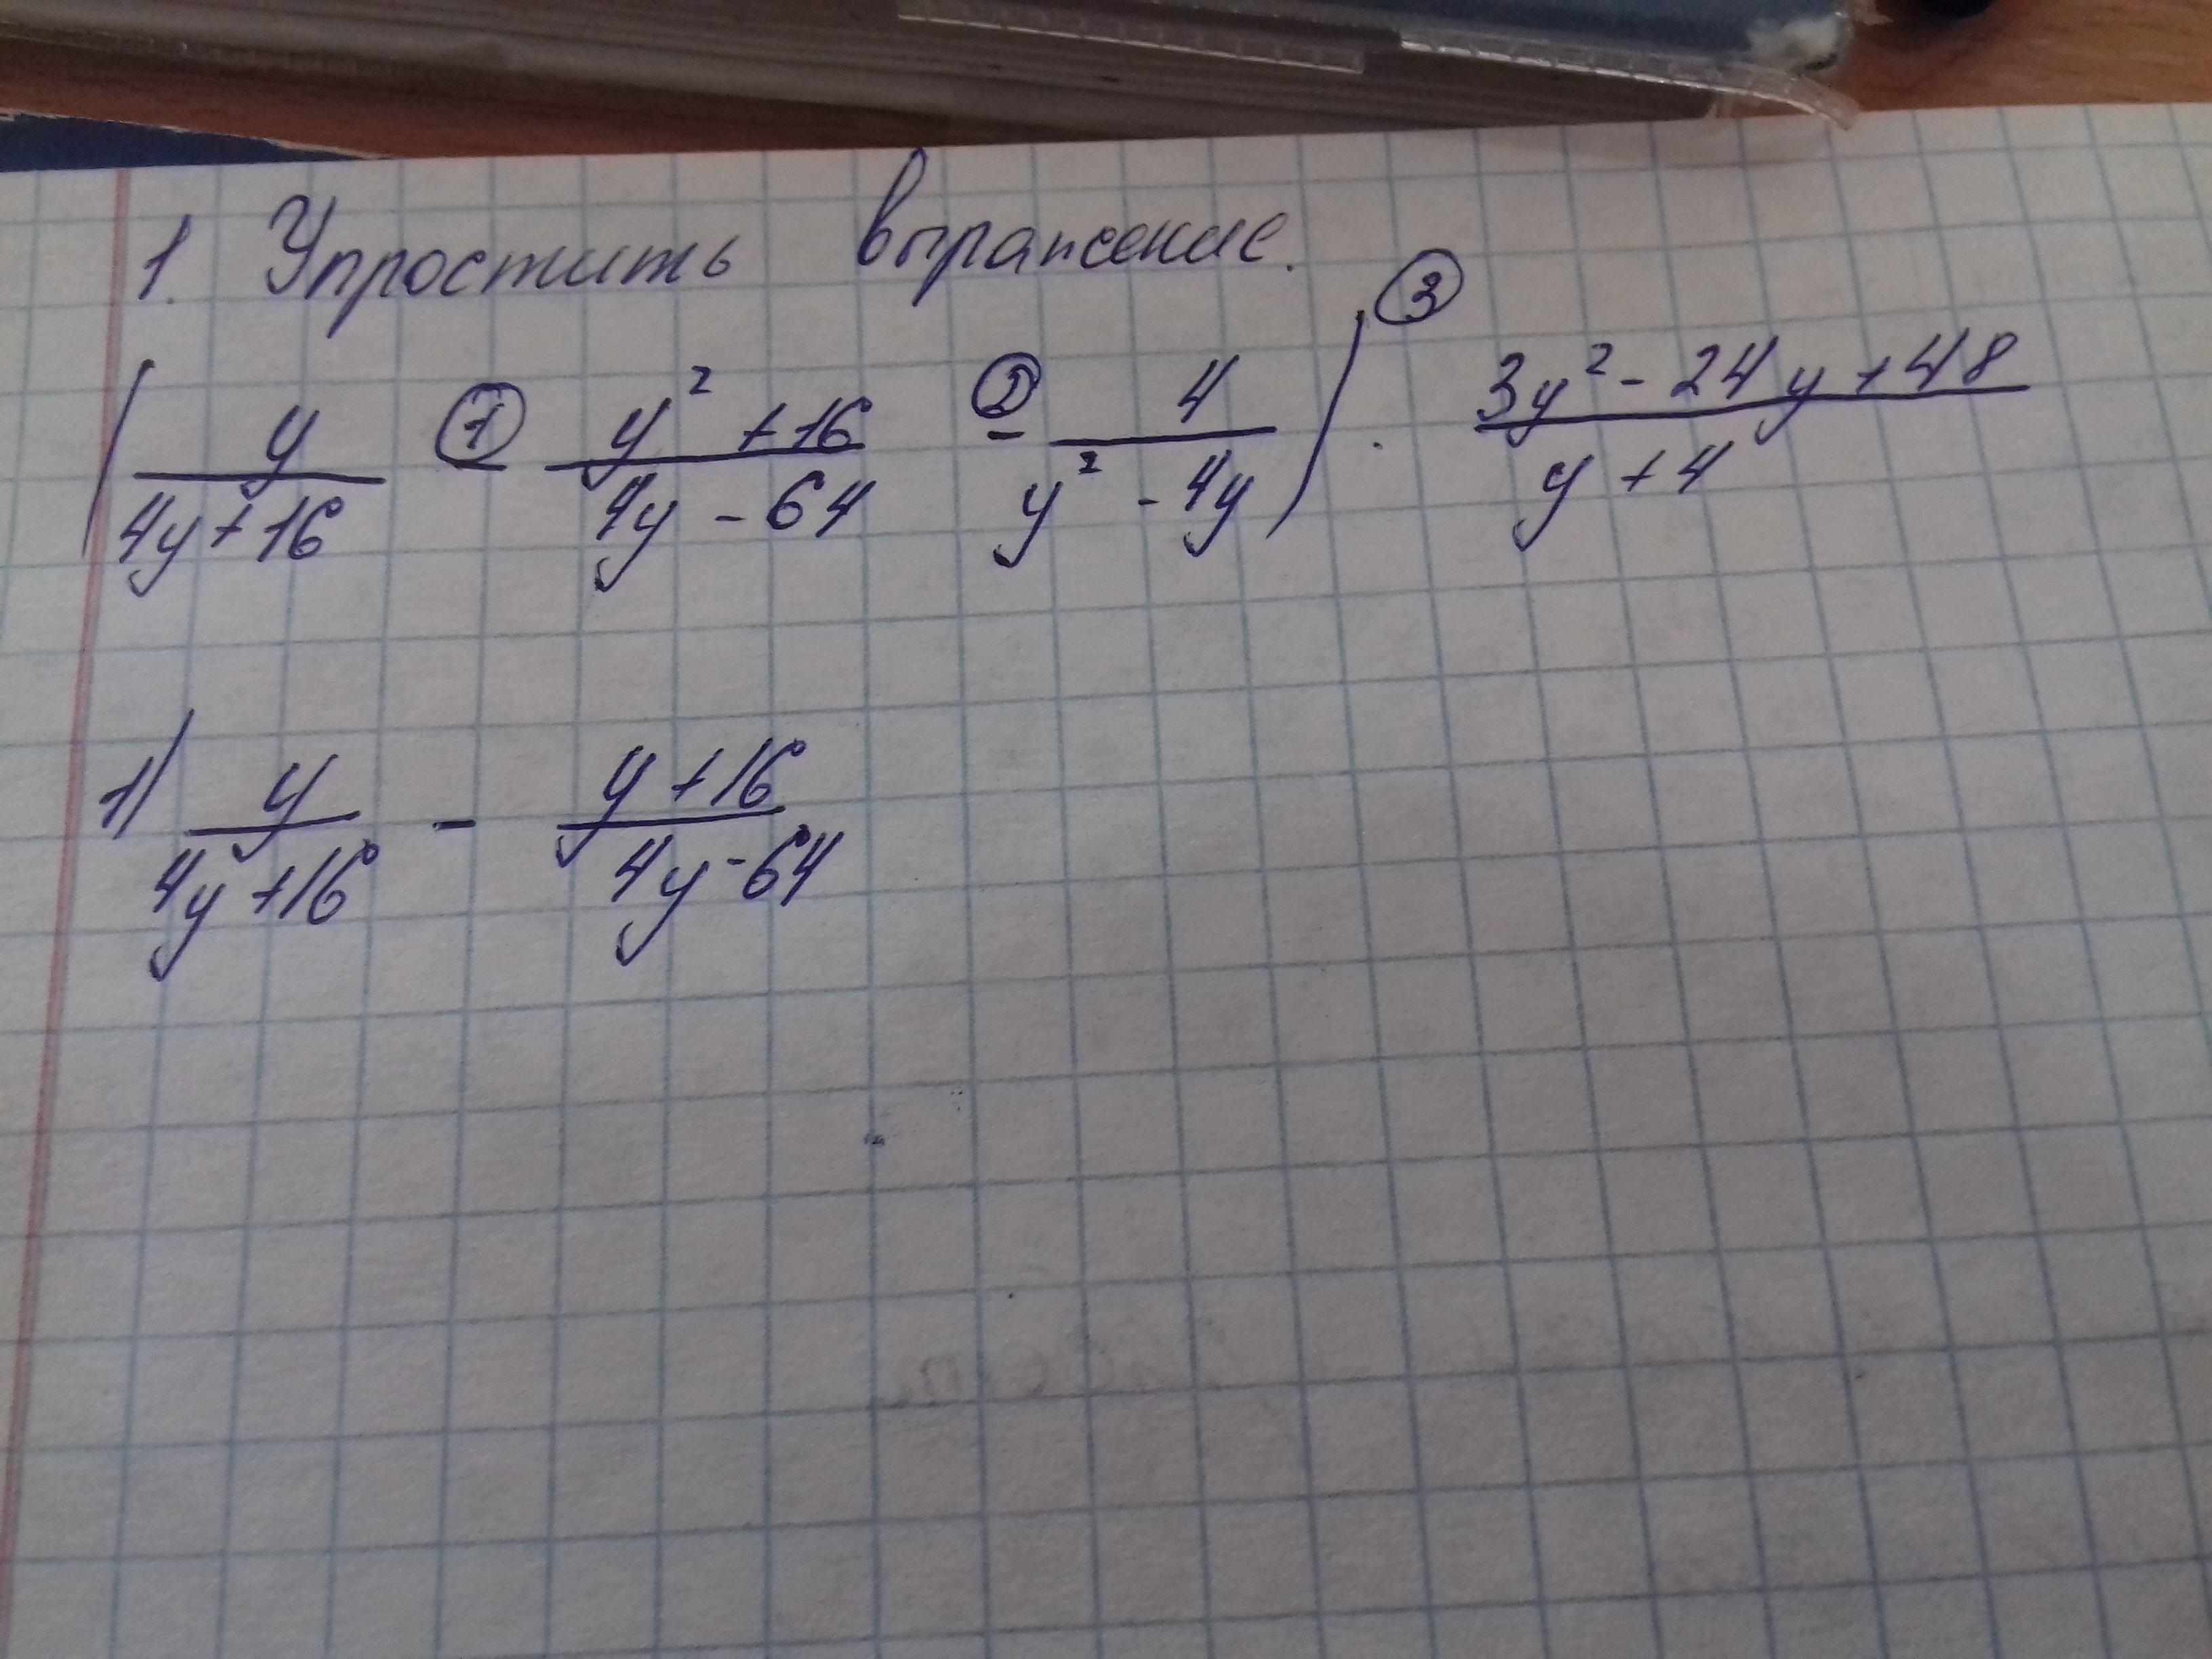 1. Упростить выражение.
( y/(4y+16) ①- (y²+16)/(4y-64) ②- 4/(y²-4y) ) ③· (3y²-24y+48)/(y+4)
1) y/(4y+16) - (y+16)/(4y-64)